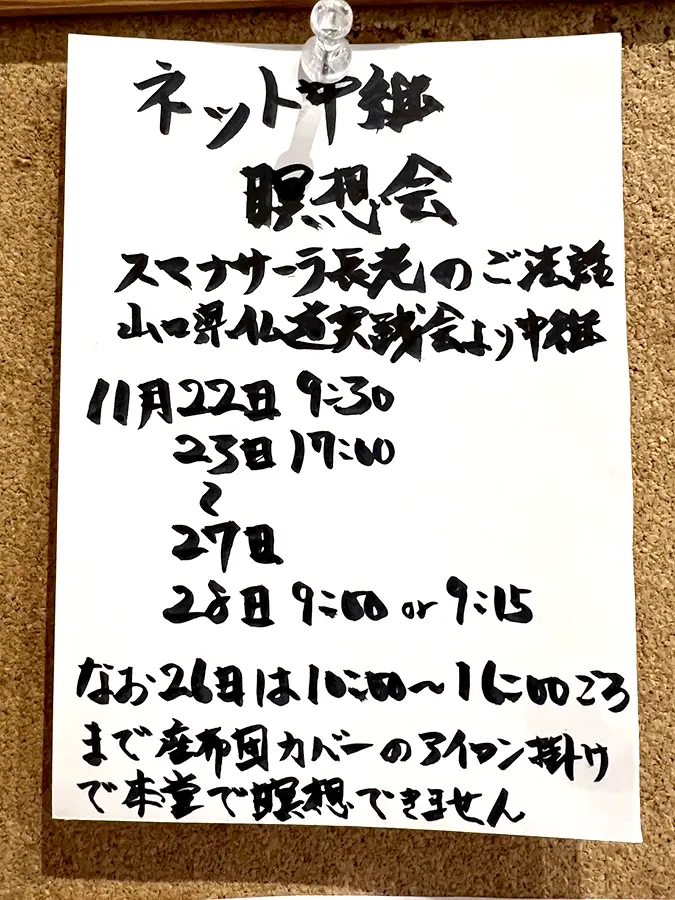 ネット中継
瞑想会
スマナサーラ長老のご法話
山口県仏道実践会より中継
11月22日 9:30
23日 17:00
〜
27日
28日 9:00 or 9:15
なお26日は10:00〜16:00ごろ
まで座布団カバーのアイロン掛け
で本堂で瞑想できません